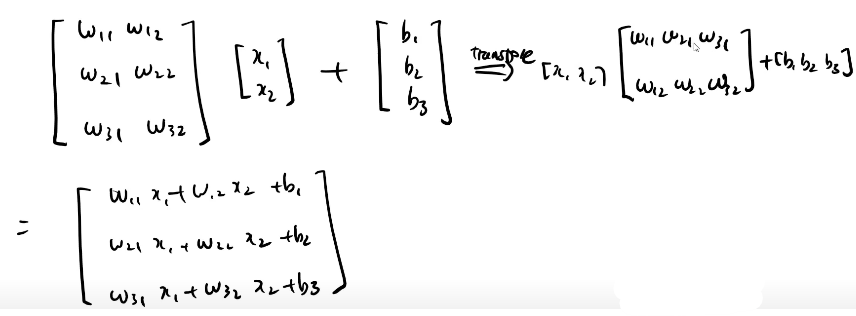 [ w₁₁ w₁₂ ; w₂₁ w₂₂ ; w₃₁ w₃₂ ] [ x₁ ; x₂ ] + [ b₁ ; b₂ ; b₃ ] ⟹ (transpose) [x₁ x₂] [ w₁₁ w₂₁ w₃₁ ; w₁₂ w₂₂ w₃₂ ] + [b₁ b₂ b₃]
= [ w₁₁ x₁ + w₁₂ x₂ + b₁
w₂₁ x₁ + w₂₂ x₂ + b₂
w₃₁ x₁ + w₃₂ x₂ + b₃ ]